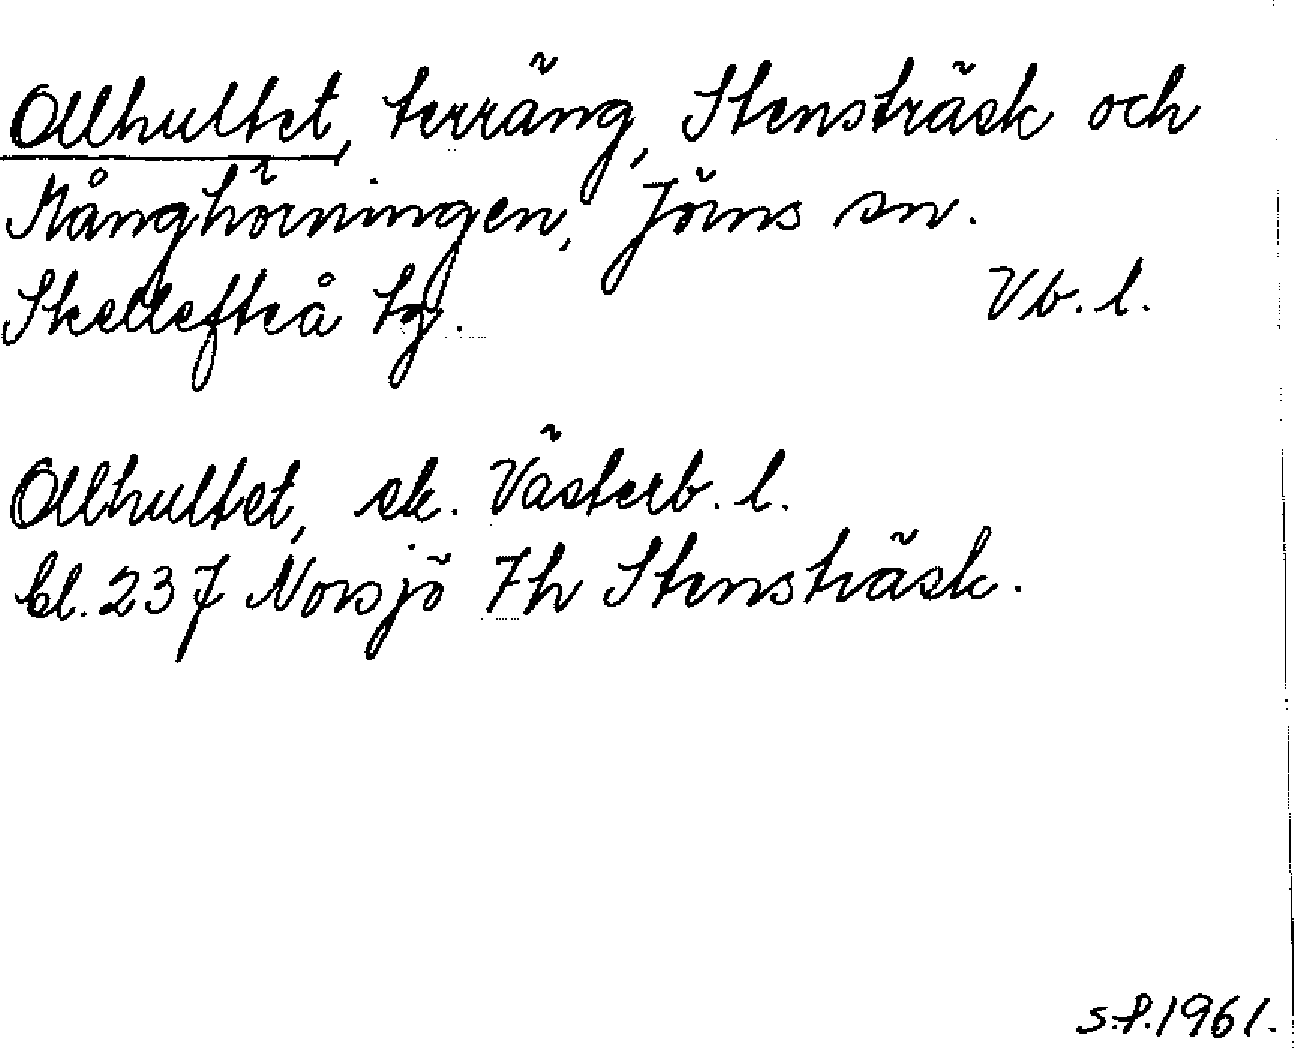 Ollhultet, terräng, Stensträsk och
Månghörningen, Jörns sn.
Skellefteå tg. Vb. l.
Ollhultet, ek. Västerb. l.
bl. 237 Norsjö 7h Stensträsk.
S.P. 1961.